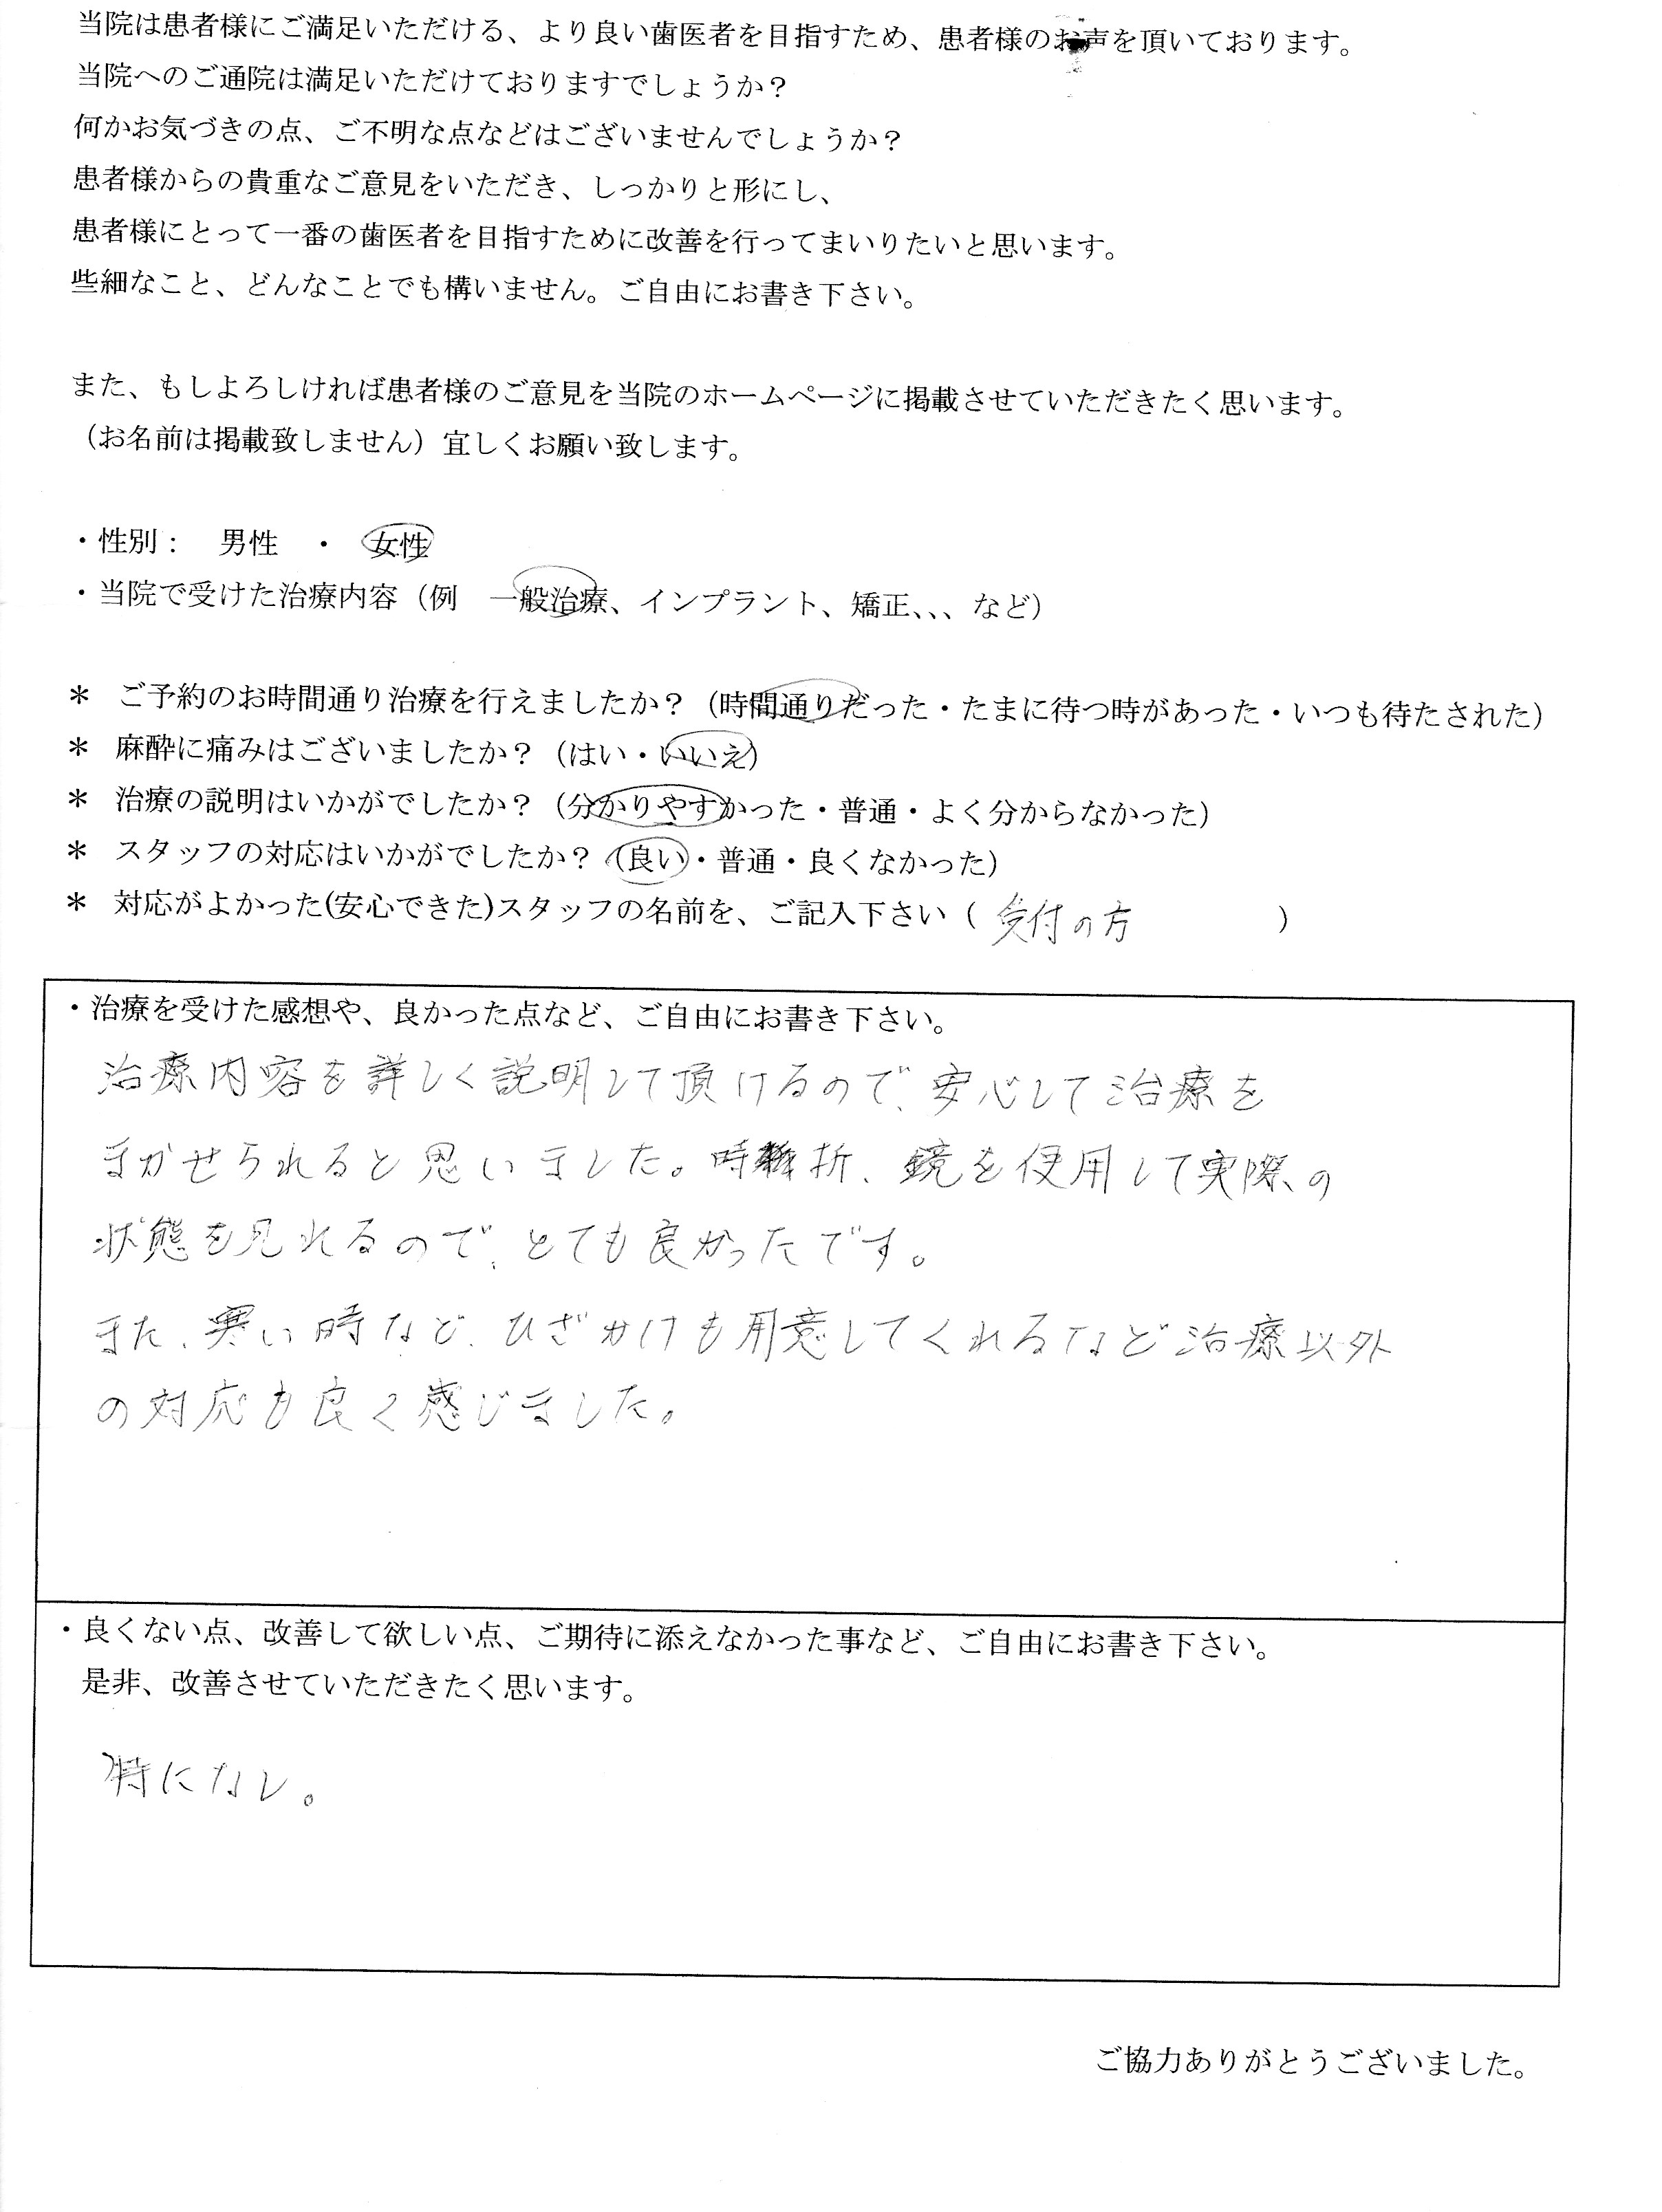 当院は患者様にご満足いただける、より良い歯医者を目指すため、患者様のお声を頂いております。
当院へのご通院は満足いただけておりますでしょうか？
何かお気づきの点、ご不明な点などはございませんでしょうか？
患者様からの貴重なご意見をいただき、しっかりと形にし、
患者様にとって一番の歯医者を目指すために改善を行ってまいりたいと思います。
些細なこと、どんなことでも構いません。ご自由にお書き下さい。
また、もしよろしければ患者様のご意見を当院のホームページに掲載させていただきたく思います。
（お名前は掲載致しません）宜しくお願い致します。
・性別： 男性 ・ 女性
・当院で受けた治療内容（例 一般治療、インプラント、矯正、、、など）
＊ ご予約のお時間通り治療を行えましたか？（時間通りだった・たまに待つ時があった・いつも待たされた）
＊ 麻酔に痛みはございましたか？（はい・いいえ）
＊ 治療の説明はいかがでしたか？（分かりやすかった・普通・よく分からなかった）
＊ スタッフの対応はいかがでしたか？（良い・普通・良くなかった）
＊ 対応がよかった(安心できた)スタッフの名前を、ご記入下さい（ 受付の方 ）
・治療を受けた感想や、良かった点など、ご自由にお書き下さい。
治療内容を詳しく説明して頂けるので、安心して治療を
まかせられると思いました。時折、鏡を使用して実際の
状態を見れるので、とても良かったです。
また、寒い時など、ひざかけも用意してくれるなど治療以外
の対応も良く感じました。
・良くない点、改善して欲しい点、ご期待に添えなかった事など、ご自由にお書き下さい。
是非、改善させていただきたく思います。
特になし。
ご協力ありがとうございました。